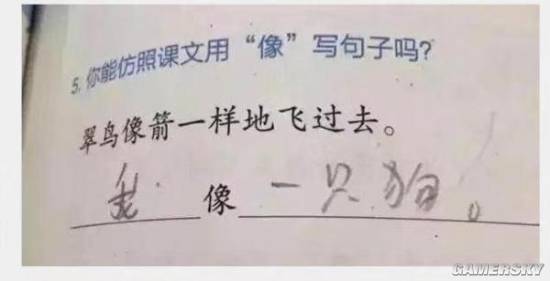 5. 你能仿照课文用“像”写句子吗?
翠鸟像箭一样地飞过去。
我像一只狗。
GAMERSKY